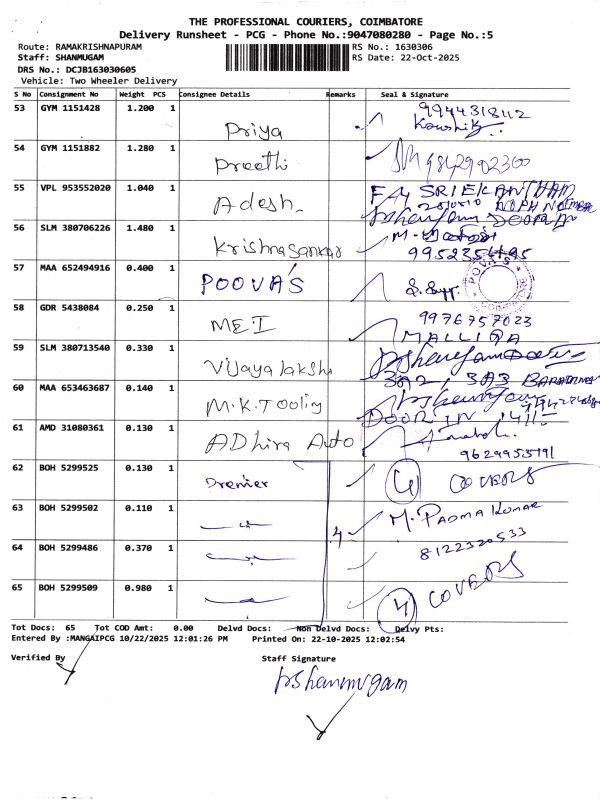 THE PROFESSIONAL COURIERS, COIMBATORE
Delivery Runsheet - PCG - Phone No.:9047080280 - Page No.:5
Route: RAMAKRISHNAPURAM RS No.: 1630306
Staff: SHANMUGAM RS Date: 22-Oct-2025
DRS No.: DCJB163030605
Vehicle: Two Wheeler Delivery
S No Consignment No Weight PCS Consignee Details Remarks Seal & Signature
53 GYM 1151428 1.200 1 Priya 9944318112
Kowshik
54 GYM 1151882 1.280 1 Preethi 9842902300
55 VPL 953552020 1.040 1 Adesh F4 SRIEKANTHAM
56 SLM 380706226 1.480 1 Krishnasankar
57 MAA 652494916 0.400 1 POOVA'S
POVA'S
COIMBATORE
58 GDR 5438084 0.250 1 MEI 9976757023
MALLIGA
59 SLM 380713540 0.330 1 Vijayalakshi
3A2, 3A3
60 MAA 653463687 0.140 1 M.K.Tooling
DOOR IN
61 AMD 31080361 0.130 1 ADhira Auto
62 BOH 5299525 0.130 1 Premier 4 COVERS
63 BOH 5299502 0.110 1 4 M. PADMA KUMAR
64 BOH 5299486 0.370 1 8122320533
65 BOH 5299509 0.980 1 4 COVERS
Tot Docs: 65 Tot COD Amt: 0.00 Delvd Docs: Non Delvd Docs: Delvy Pts:
Entered By :MANGAIPCG 10/22/2025 12:01:26 PM Printed On: 22-10-2025 12:02:54
Verified By Staff Signature
Shanmugam